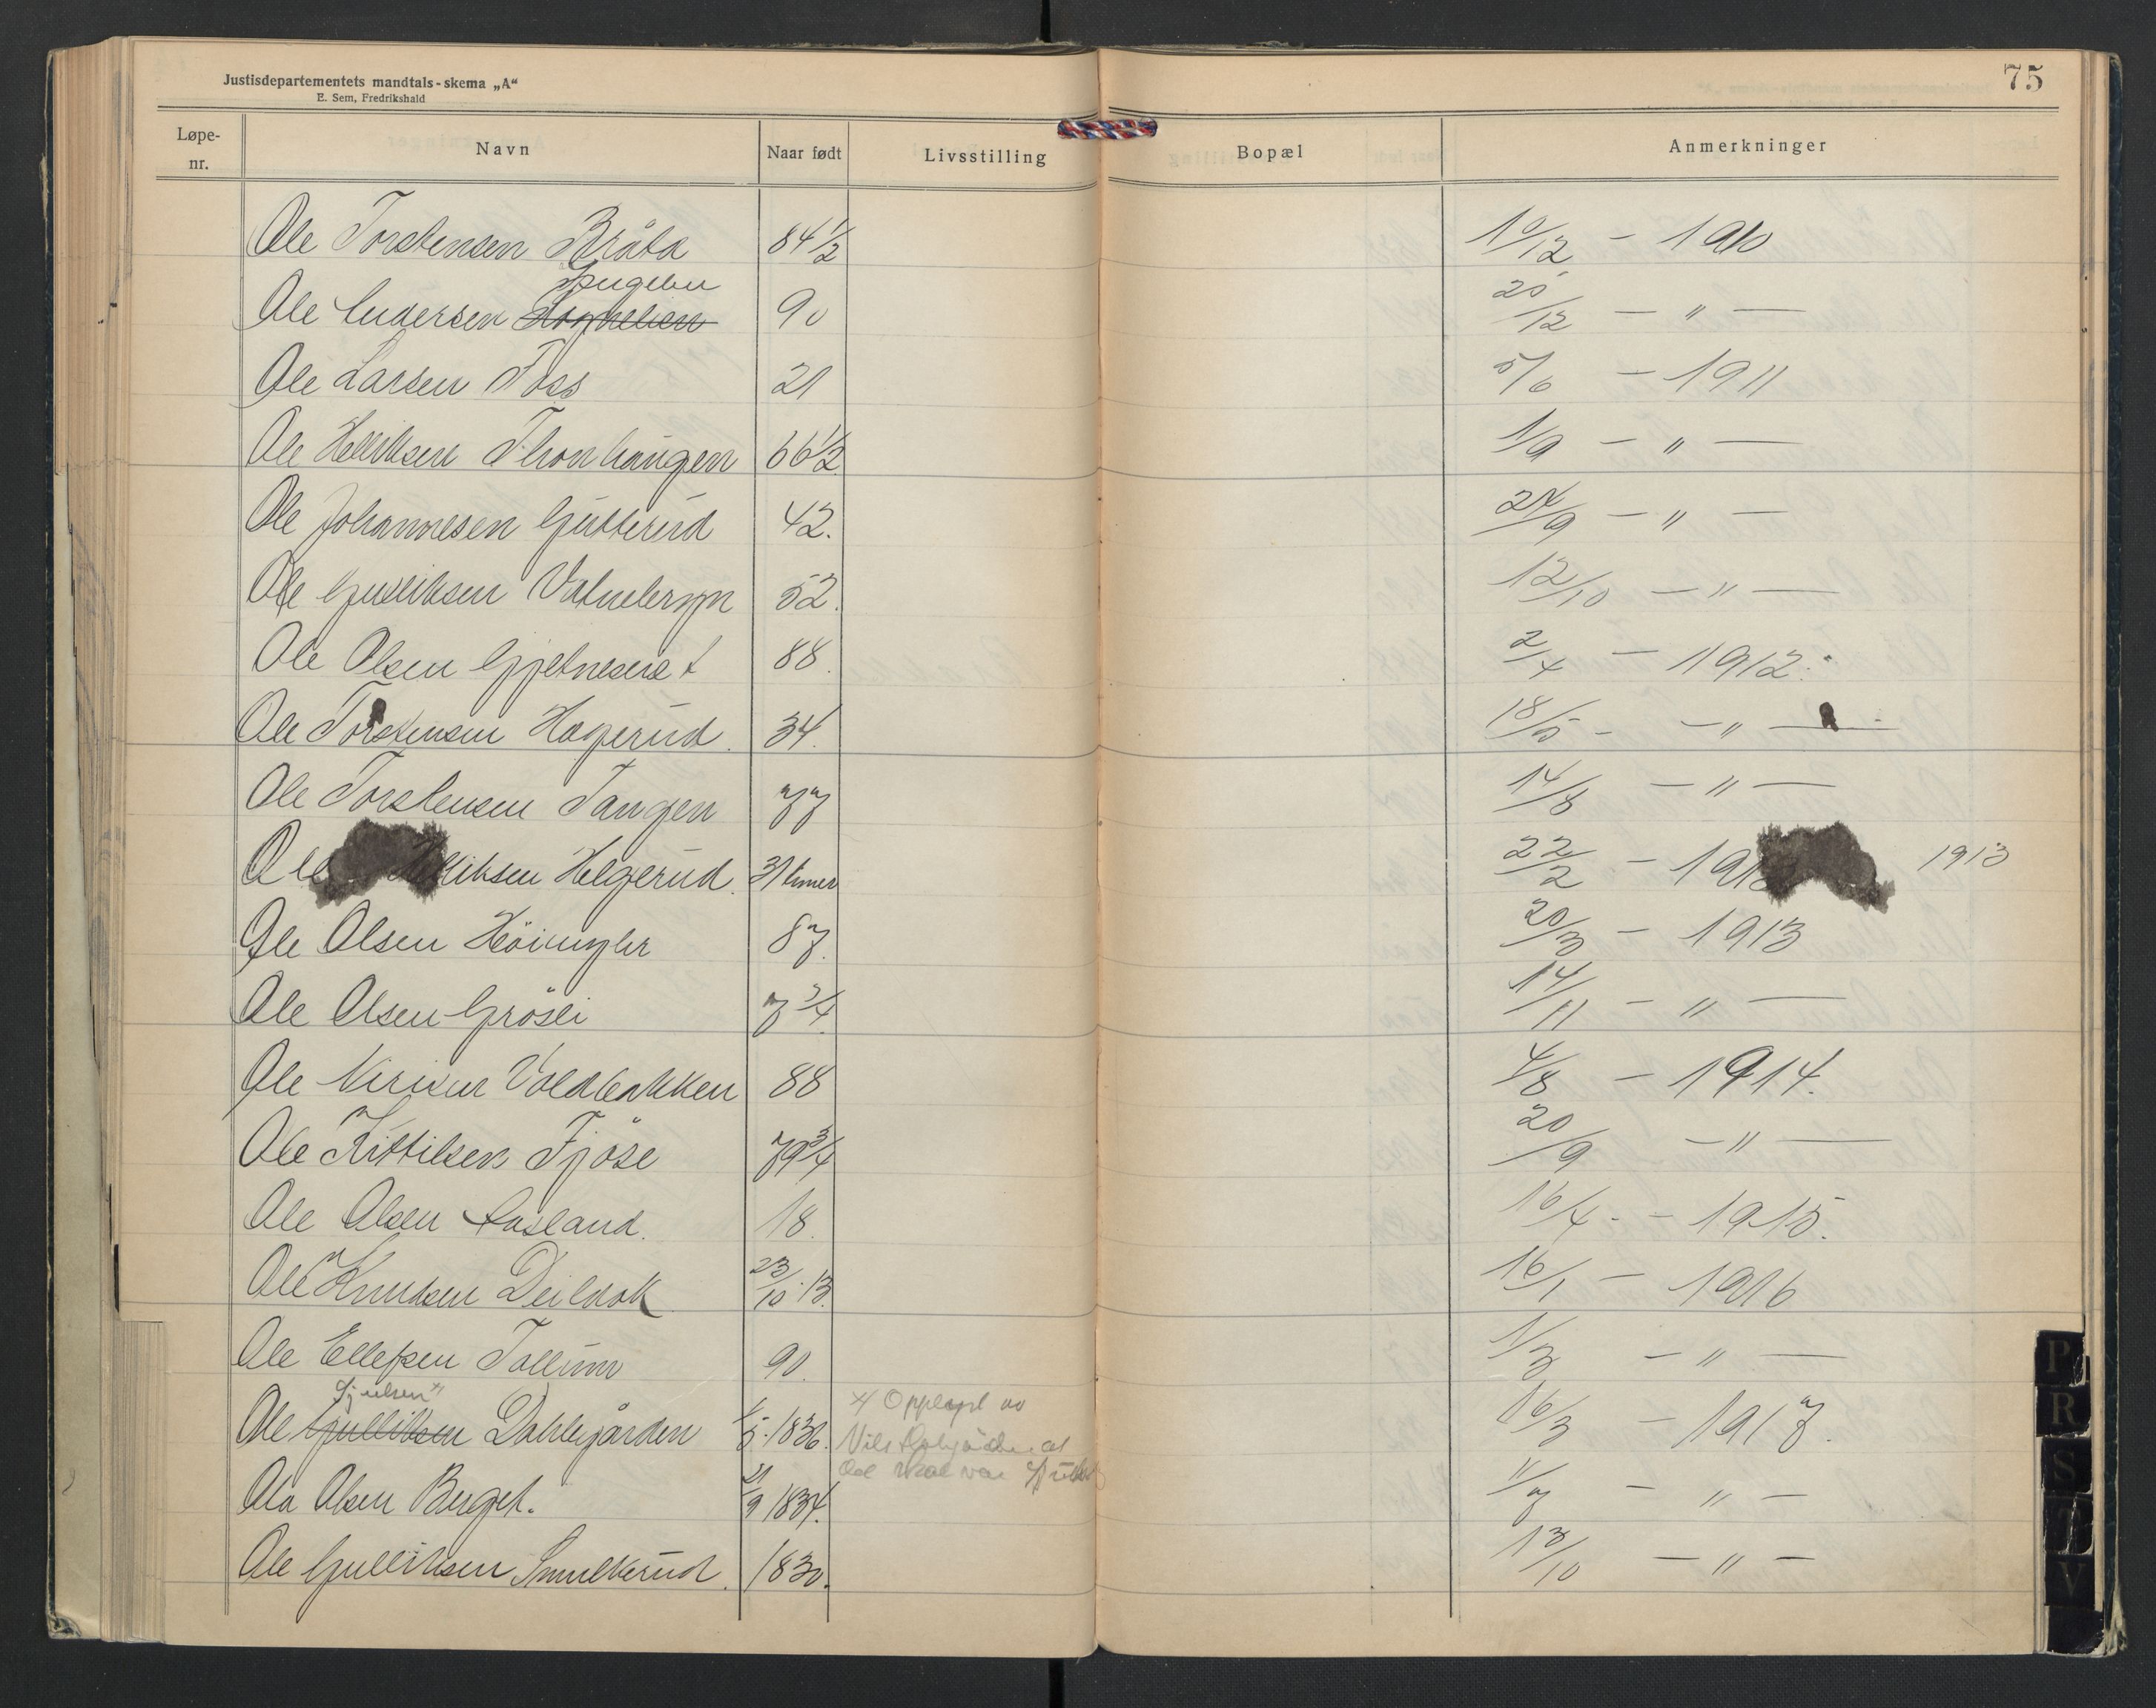 75
Justisdepartementets mandtals-skema „A“
E. Sem, Fredrikshald
Løpe-nr. Navn Naar født Livsstilling Bopæl Anmerkninger
Ole Torstensen Bråta 84 1/2 10/12 - 1910
Ole Andersen 90 20/12 - " -
Ole Larsen Foss 21 5/6 - 1911
Ole Helliksen Thonhaugen 66 1/2 1/9 - " -
Ole Johannesen Gutterud 42. 24/9 - " -
Ole Gulliksen 52. 12/10 - " -
Ole Olsen 88. 2/4 - 1912.
Ole Torstensen Hagerud. 34. 18/5 - - " -
Ole Torstensen Tangen 77 14/8 - " -
Ole Helliksen Helgerud. 31 timer 22/2 - 1913 1913
Ole Olsen 87. 20/3 - 1913
Ole Olsen Grøsli 7 3/4. 14/11 - " -
Ole Nirisen Voldbakken 88 4/8 - 1914.
Ole Kittilsen Fjøse 79 3/4 20/9 - " -
Ole Olsen Aasland. 18. 16/4 - - 1915.
Ole Knudsen Deildok 23/10 - 13. 16/1 - 1916
Ole Ellefsen Tollum 90. 1/3 - " -
Ole Gulliksen Dahlegården 1/5 - 1836. x/ Opplagt av 16/3 - 1917.
Nils at
Ole skal være
Ola Olsen Berget. 21/9 1834. 11/7 - " -
Ole Gulliksen Smulkerud. 1830. 13/10 - " -
P
R
S
T
V